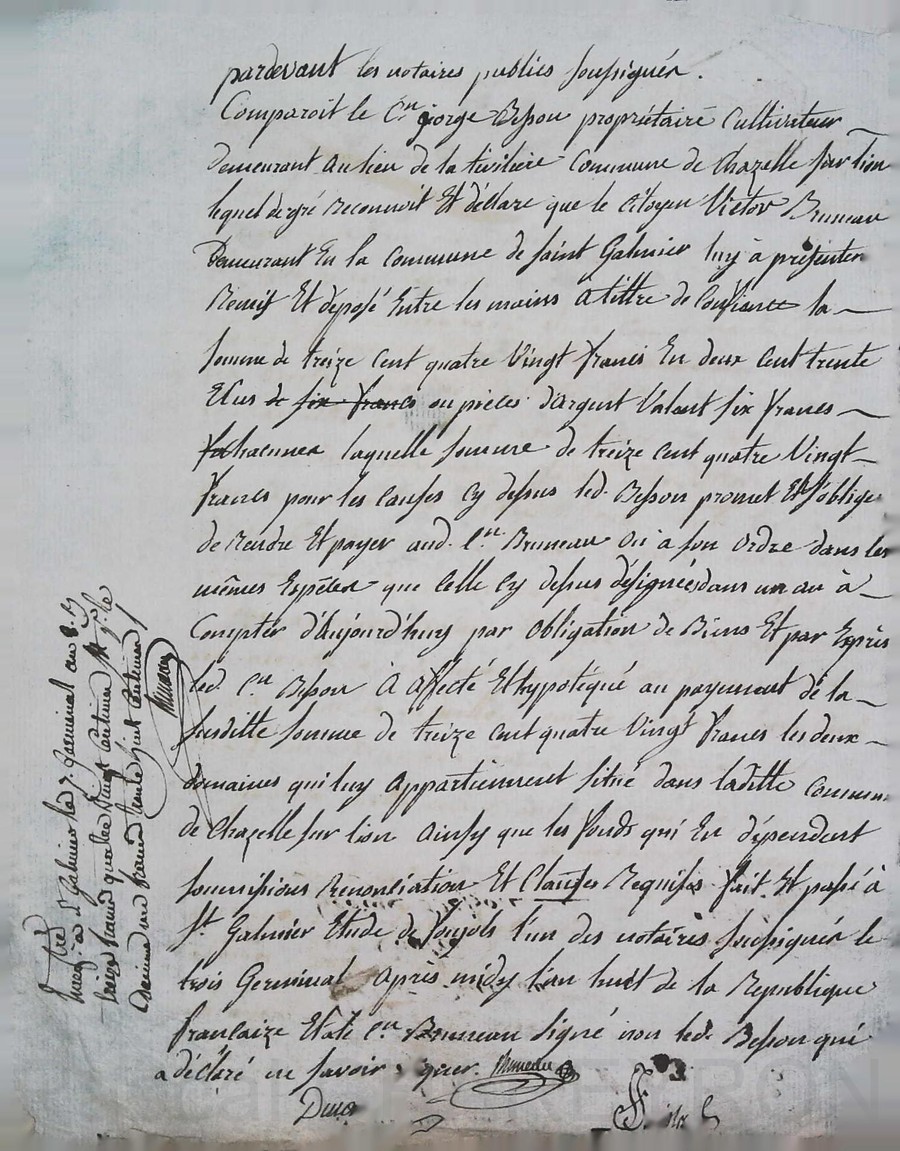 pardevant les notaires publics soussignés.
Comparoit le C.en gorge Besson propriétaire Cultivateur
demeurant au lieu de la commune de Chazelle sur lion
lequel de gré reconnoit Et déclare que le Citoyen Victor Bruneau
Demeurant En la Commune de Saint Galmier luy à présenter
Remis Et déposé Entre les mains à tittre de Confiance la
somme de treize Cent quatre Vingt francs En deux Cent trente
Ecus de six francs ou pièces d'argent Valant six francs
chacunes laquelle somme de treize Cent quatre Vingt
francs pour les Causes Cy dessus led. Besson promet Et s'oblige
de Rendre Et payer aud. C.en Bruneau où à son Ordre dans les
mêmes Espèces que Celle Cy dessus désignées dans un an à
Compter d'aujourd'huy par Obligation de Biens Et par Exprès
led. C.en Besson à affecté Et hypotéqué au payement de la
susditte somme de treize Cent quatre Vingt francs les deux
domaines qui luy appartiennent situé dans laditte Commune
de Chazelle sur lion ainsy que les fonds qui En dépendent
soumissions Renonciation Et Clauses Requises fait Et passé à
S.t Galmier Etude de l'un des notaires soussignés le
trois Germinal après midy l'an huit de la Republique
françaize Et à le C.en Bruneau signé non led. Besson qui
a déclaré ne savoir, quer. Bruneau
à S.t Galmier le 7. Germinal an 8. Rg
treize francs quatre Vingt Centimes